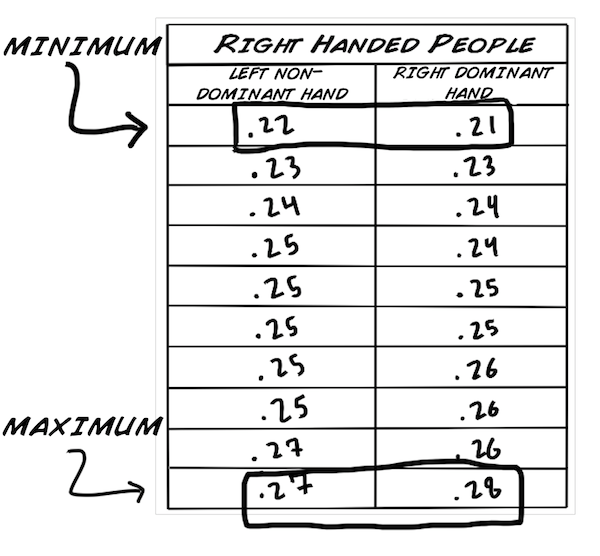 MINIMUM
RIGHT HANDED PEOPLE
LEFT NON-
DOMINANT HAND
RIGHT DOMINANT
HAND
.22 .21
.23 .23
.24 .24
.25 .24
.25 .25
.25 .25
.25 .26
.25 .26
MAXIMUM
.27 .26
.27 .28